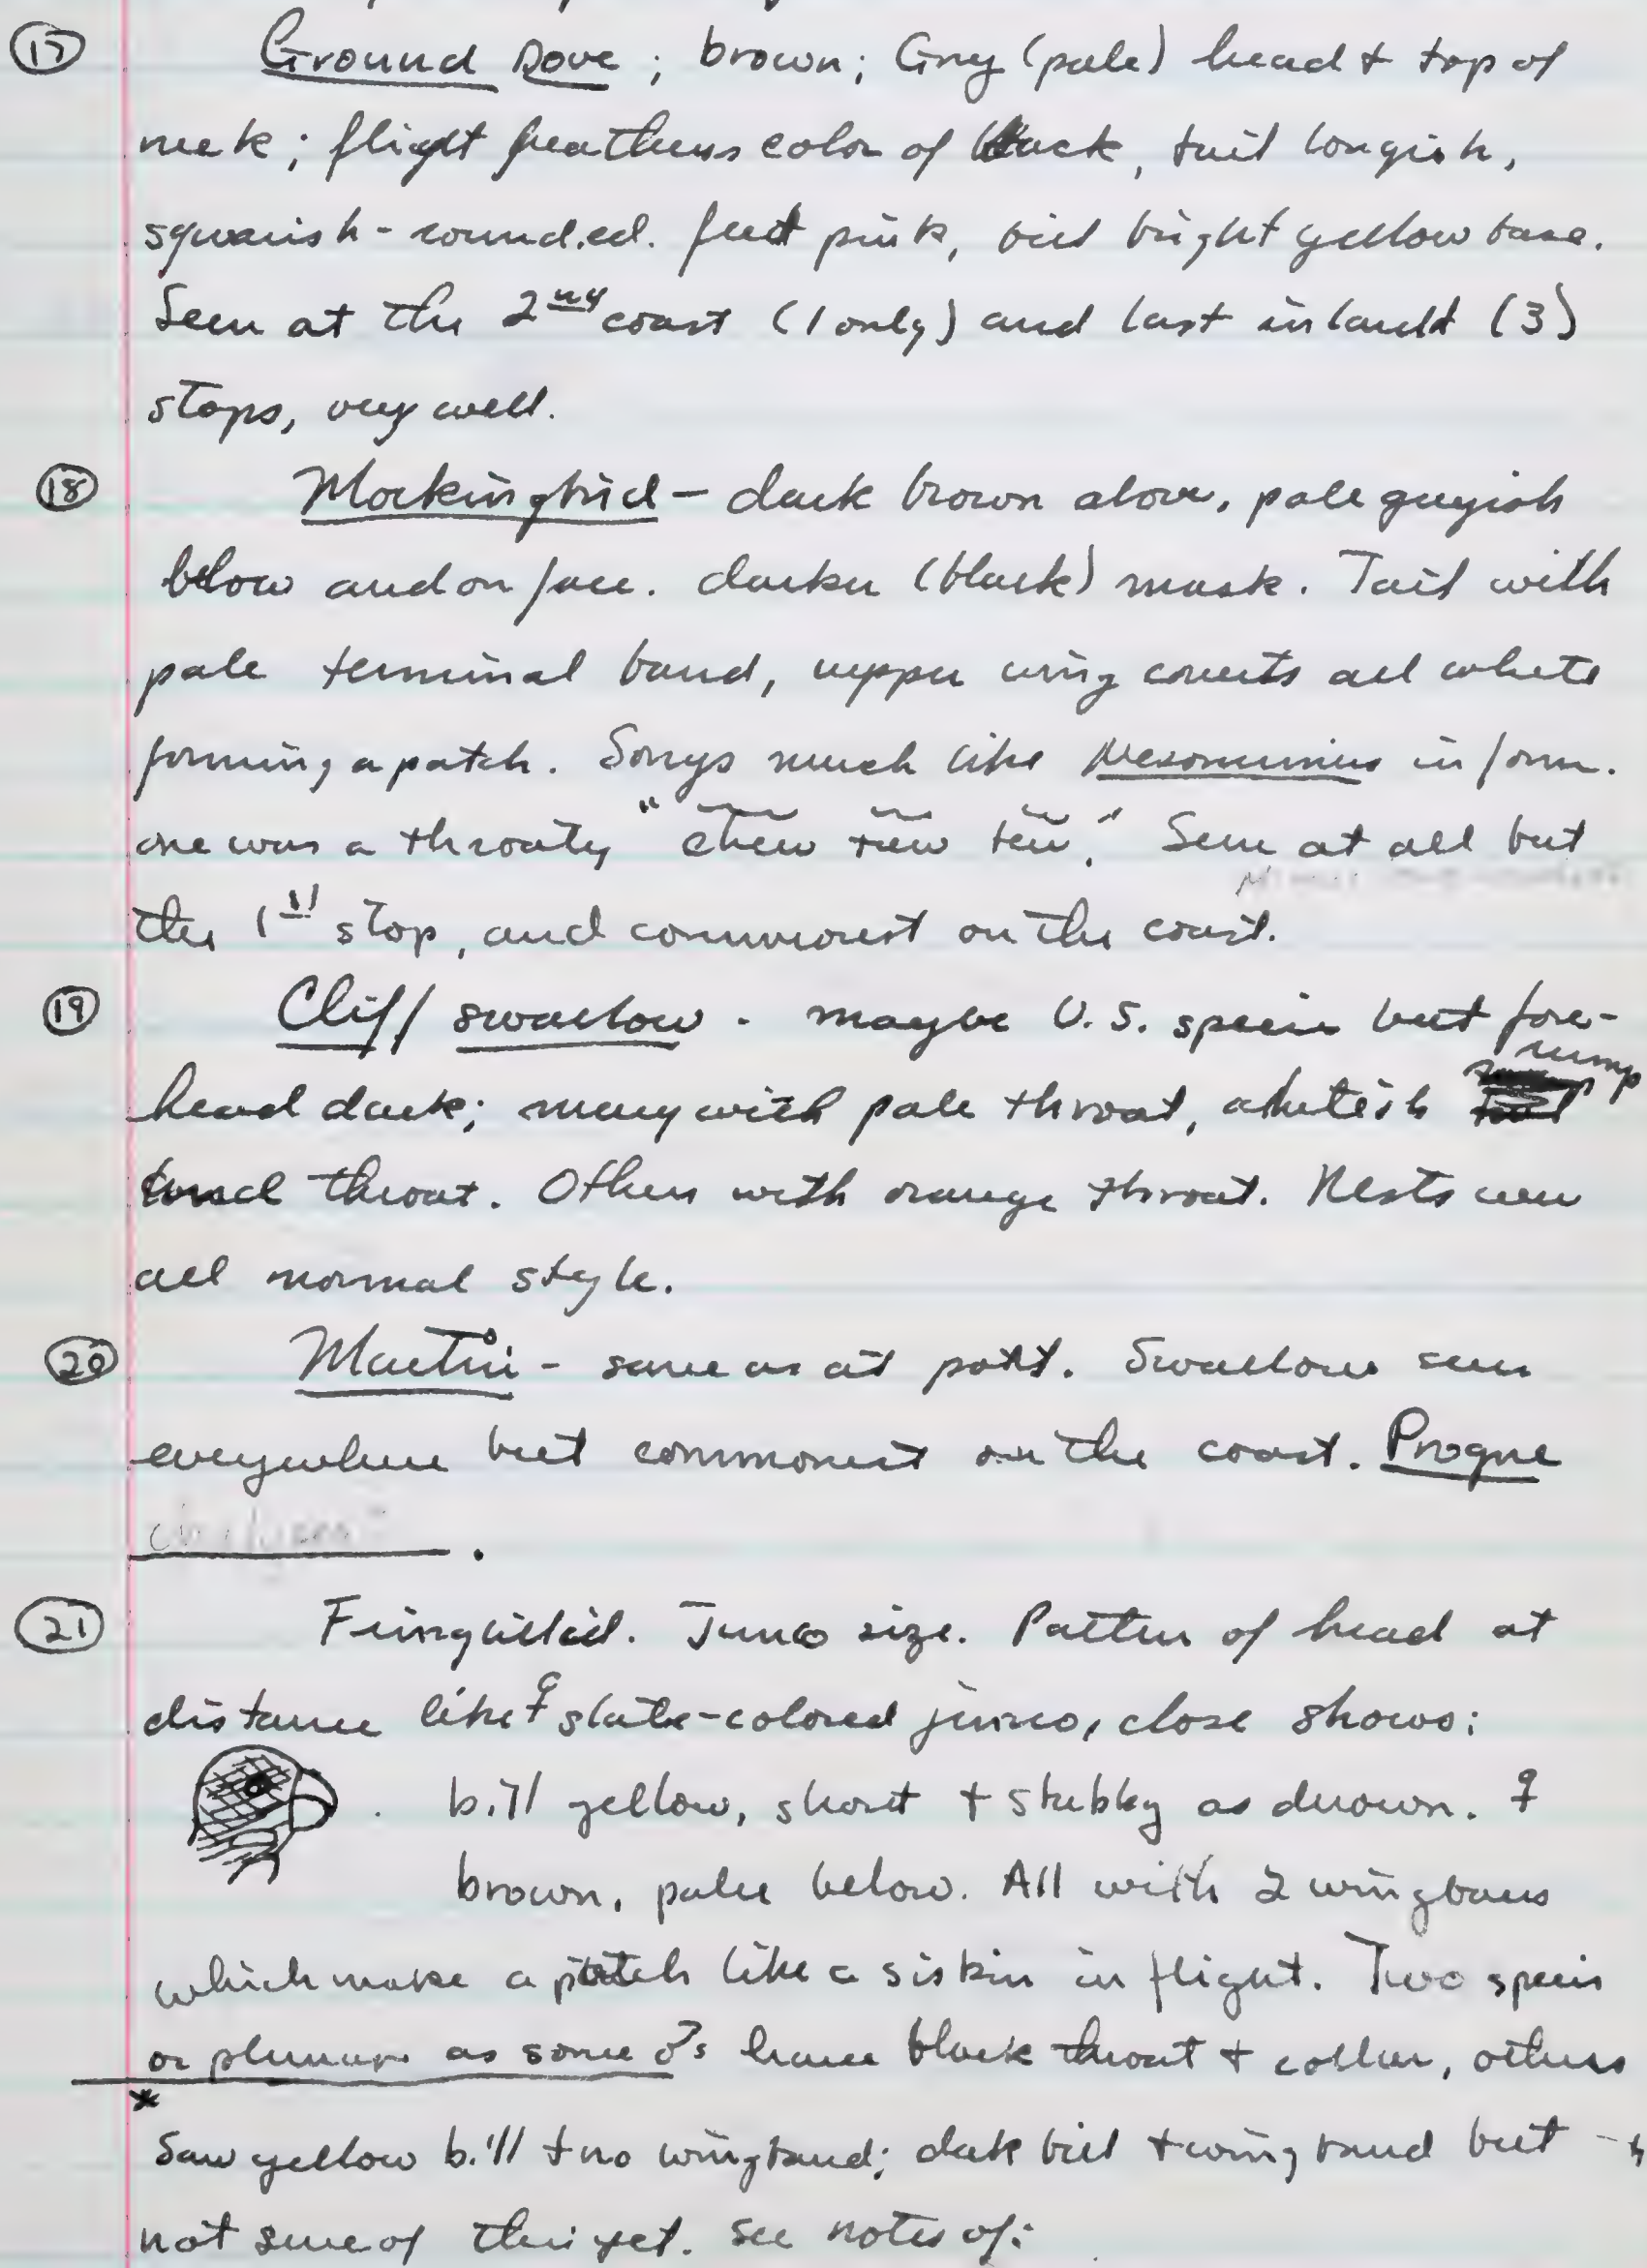 (17) Ground Dove; brown; Grey (pale) head + top of
neck; flight feathers color of back, tail longish,
squarish-rounded. feet pink, bill bright yellow base.
Seen at the 2nd coast (1 only) and last inland (3)
stops, very well.
(18) Mockingbird - dark brown above, pale greyish
below and on face. darker (black) mask. Tail with
pale terminal band, upper wing coverts all white
forming a patch. Songs much like Nesomimus in form.
one was a throaty "chew tew tew." Seen at all but
the 1st stop, and commonest on the coast.
(19) Cliff swallow - maybe U.S. species but fore-
head dark; many with pale throat, whitish rump
and throat. Others with orange throat. Nests were
all normal style.
(20) Martin - same as at port. Swallow seen
everywhere but commonest on the coast. Progne
chalybea .
(21) Fringillid. Junco size. Pattern of head at
distance like ♀ slate-colored junco, close shows:
. bill yellow, short + stubby as drawn. ♀
brown, paler below. All with 2 wingbars
which make a patch like a siskin in flight. Two species
or plumages as some ♂s have black throat + collar, others
* Saw yellow bill + no wingband; dark bill + wing band but
not sure of this yet. See notes of: